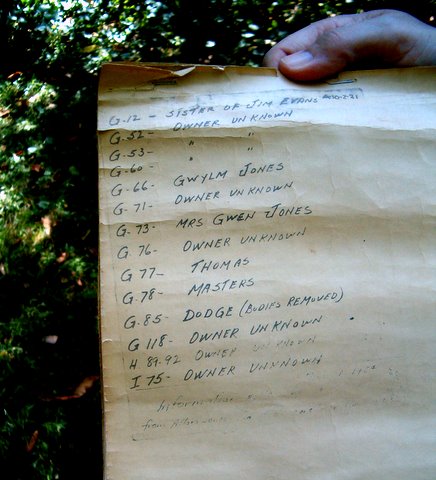 G-12 - SISTER OF JIM EVANS
G-52- OWNER UNKNOWN
G-53- " "
G-60- " "
G-66- GWYLM JONES
G-71- OWNER UNKNOWN
G-73- MRS GWEN JONES
G 76- OWNER UNKNOWN
G 77- THOMAS
G-78- MASTERS
G-85- DODGE (BODIES REMOVED)
G 118- OWNER UNKNOWN
H 89-92 OWNER UNKNOWN
I 75- OWNER UNNNOWN
Information
from